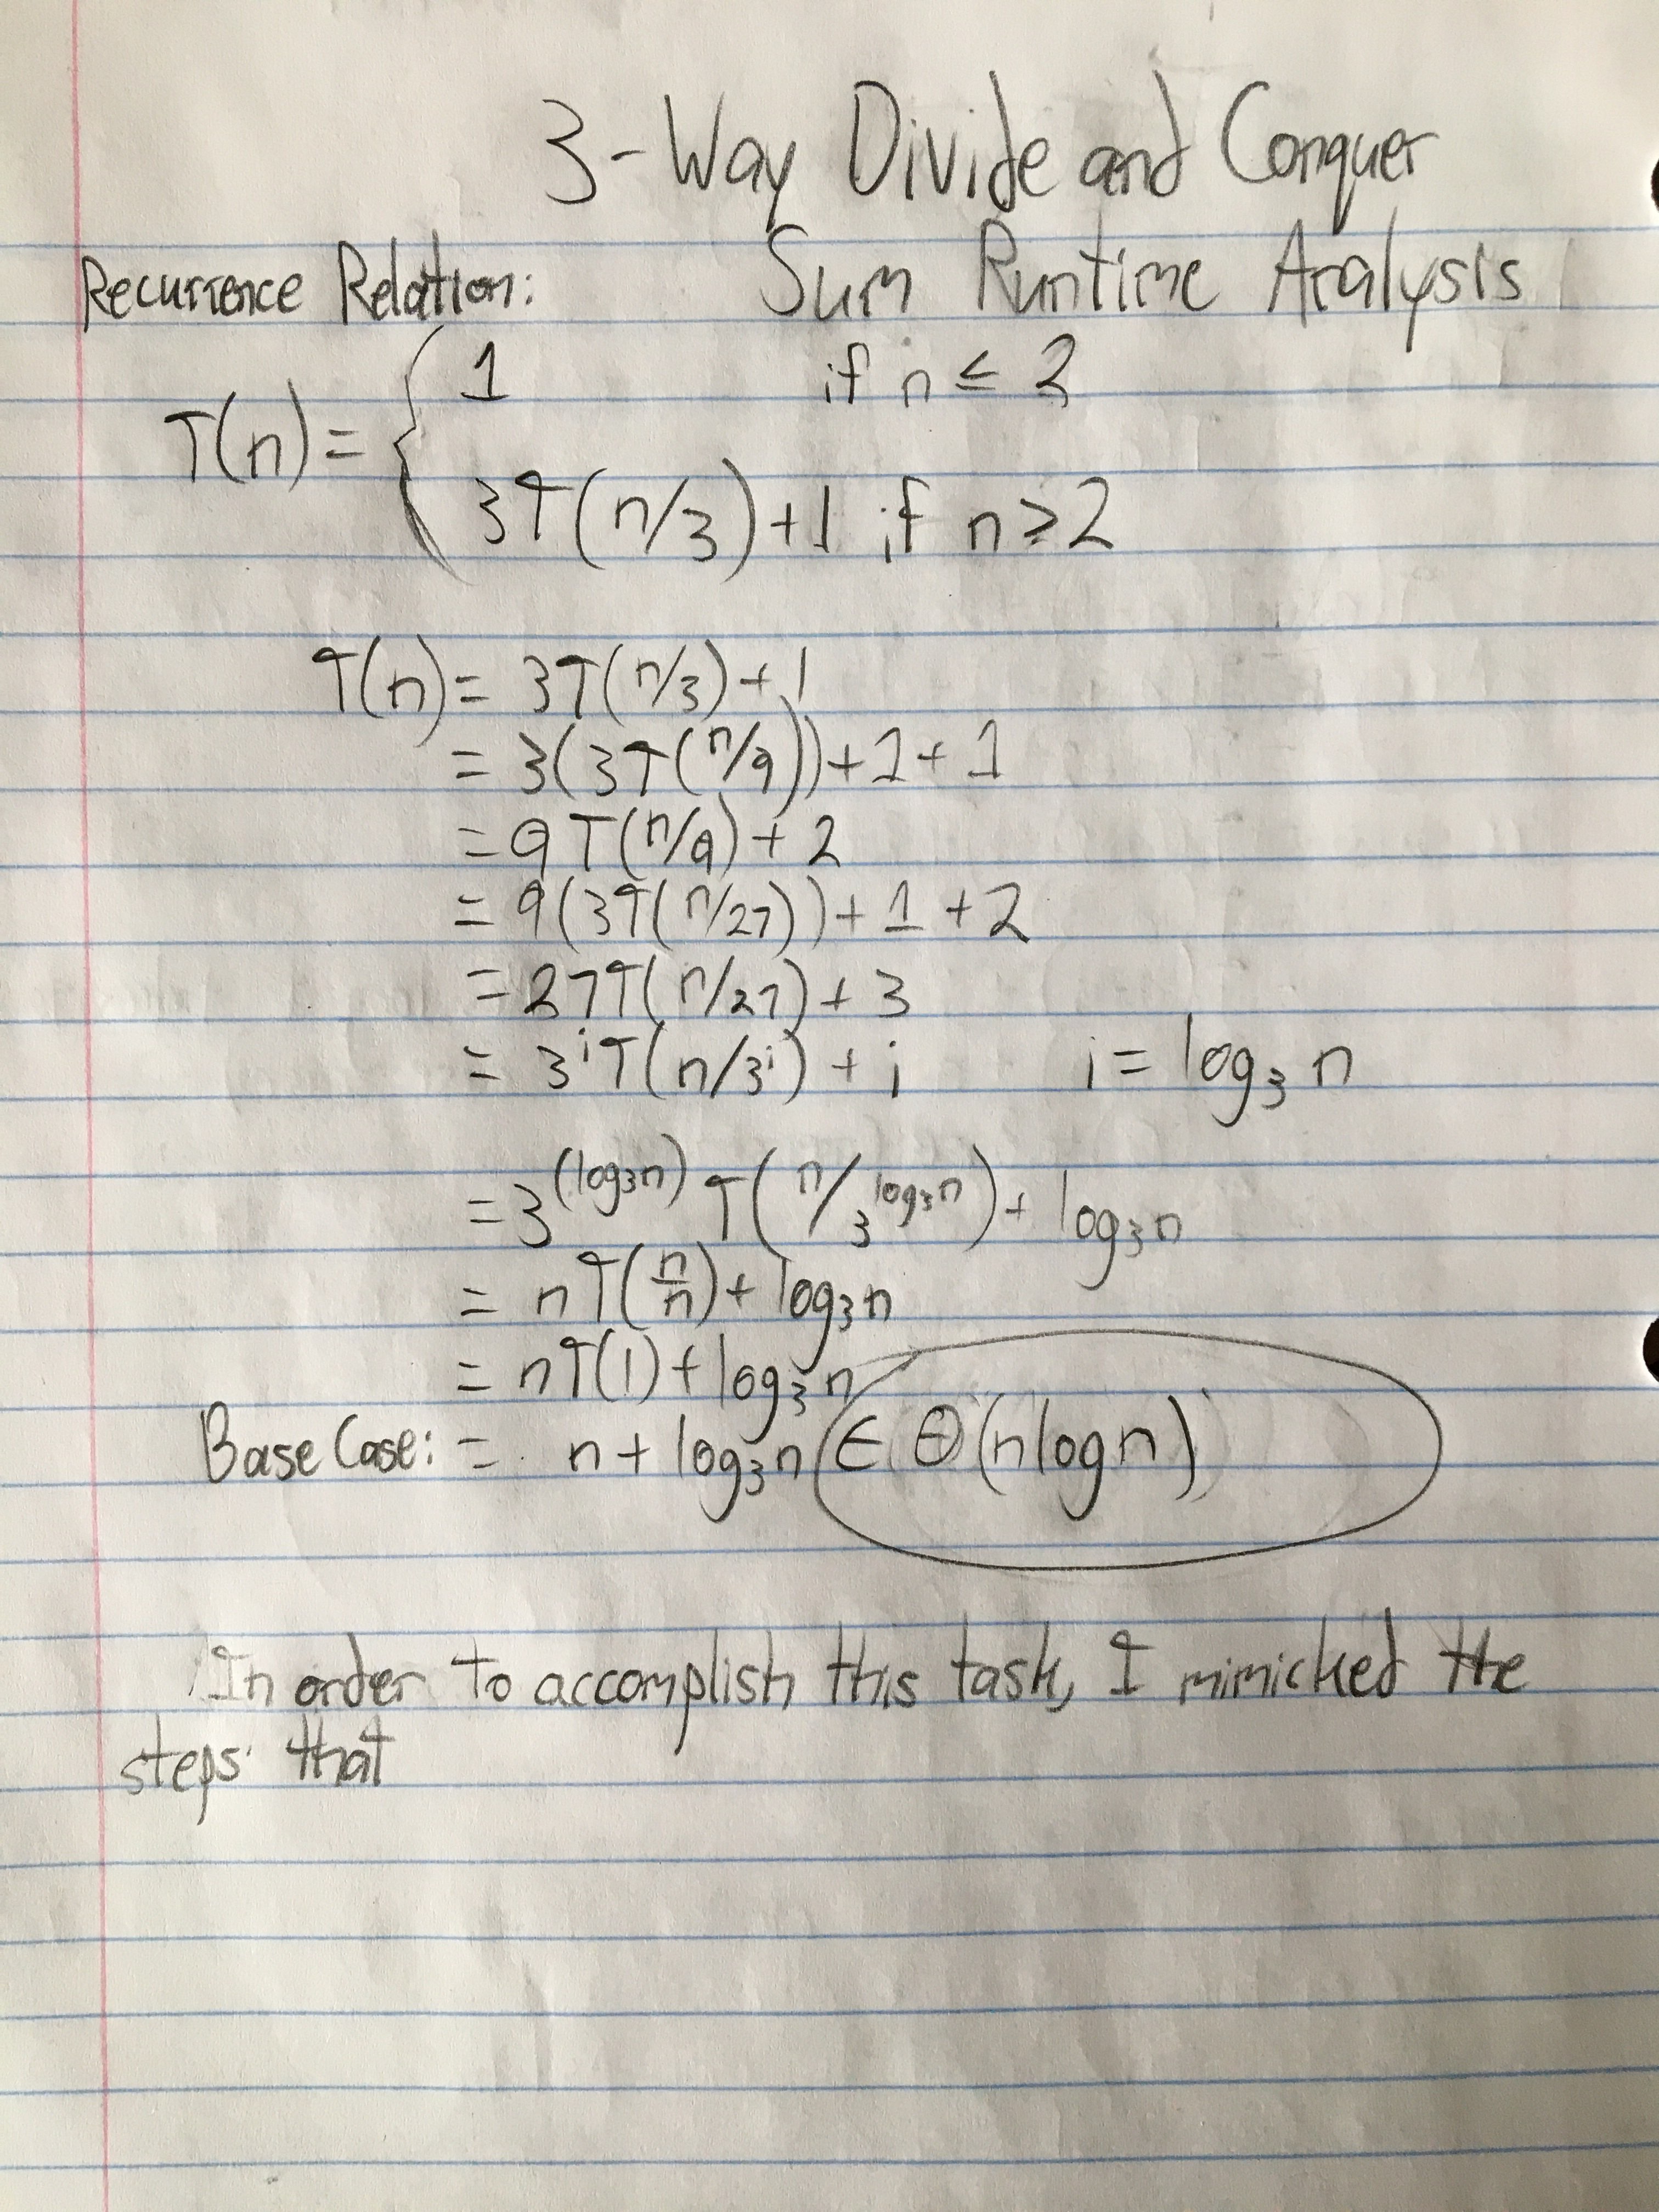 3-Way Divide and Conquer
Sum Runtime Analysis
Recurrence Relation:
T(n) = { 1 if n ≤ 2
3T(n/3)+1 if n≥2
T(n) = 3T(n/3)+1
= 3(3T(n/9))+1+1
= 9T(n/9)+2
= 9(3T(n/27))+1+2
= 27T(n/27)+3
= 3^i T(n/3^i) + i i = log₃n
= 3^(log₃n) T(n/3^log₃n) + log₃n
= nT(n/n) + log₃n
= nT(1) + log₃n
Base Case: = n + log₃n ∈ Θ(nlogn)
In order to accomplish this task, I mimicked the
steps that